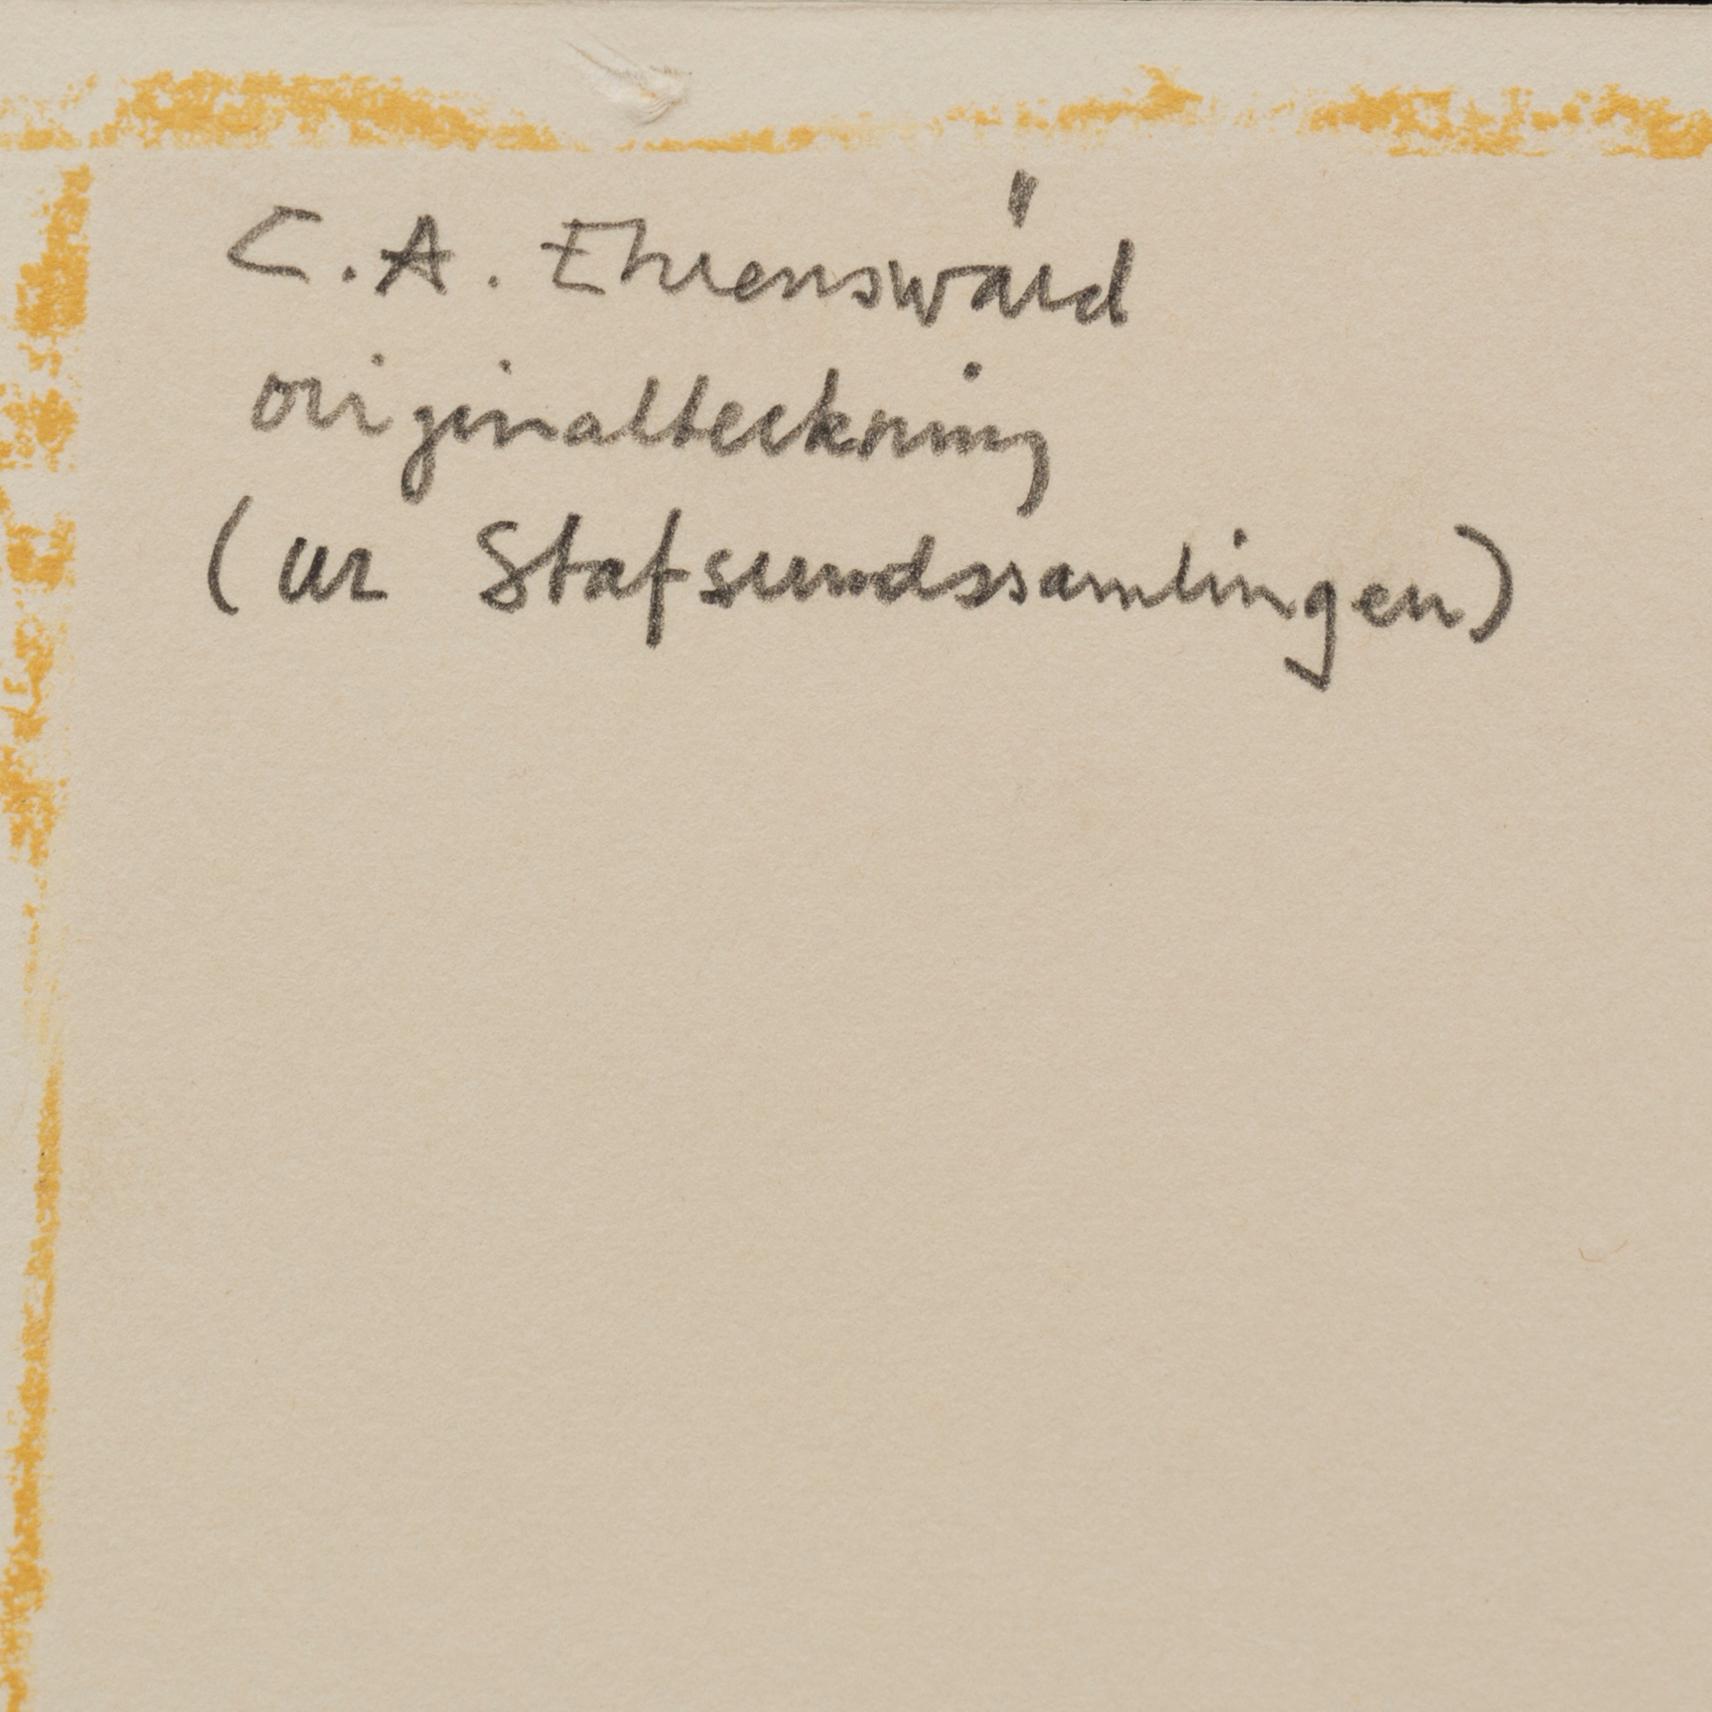 C.A. Ehrenswärd
originalteckning
(ur Stafsundssamlingen)